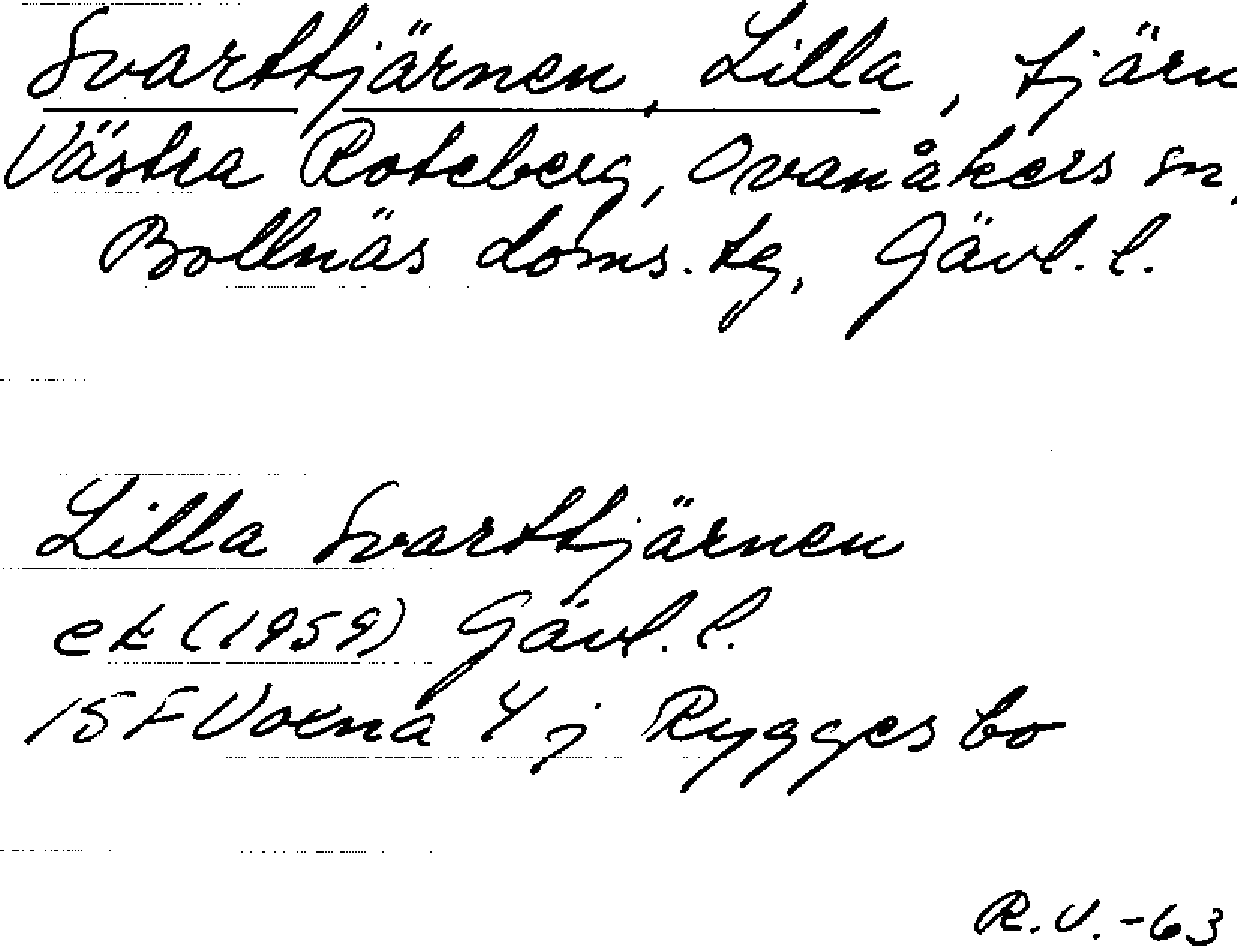 Svarttjärnen, Lilla, tjärn
Västra Roteberg, Ovanåkers sn,
Bollnäs doms. tg, Gävl. l.
Lilla Svarttjärnen
ek (1959) Gävl. l.
15 F Voxna 4 j Ryggesbo
R.V. -63